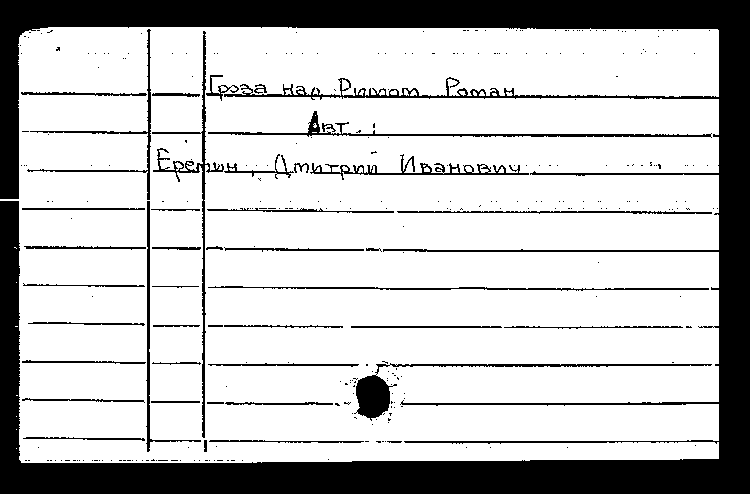 Гроза над Римом. Роман
Авт.:
Еремин, Дмитрий Иванович.